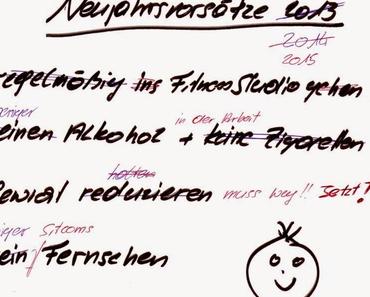 Neujahrsvorsätze 2013
2014
2015
regelmäßig ins FitnessStudio gehen
eniger in der Arbeit
einen Alkohol + keine Zigaretten
halten
reduzieren muss weg!! Jetzt!
niger Sitcoms
ein Fernsehen